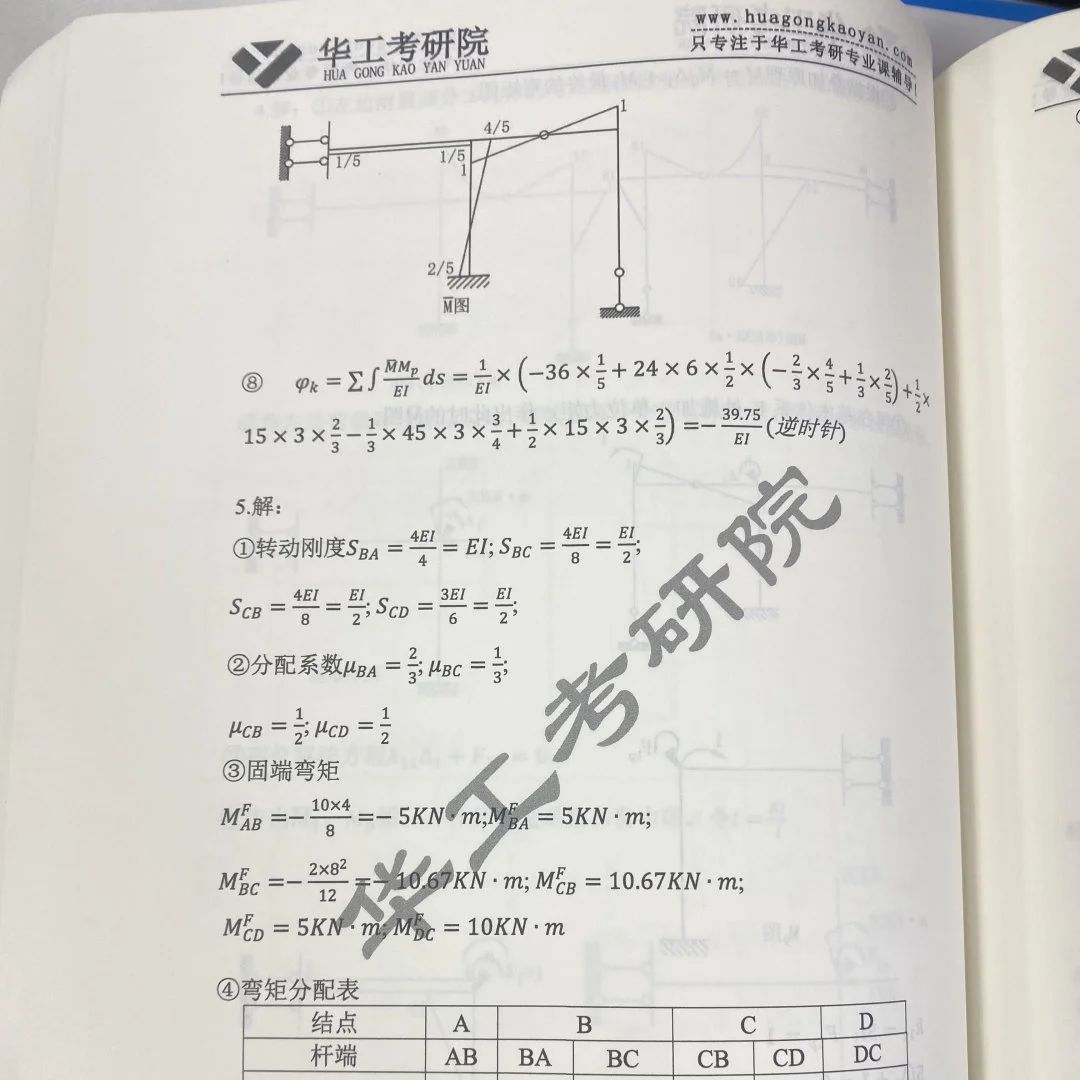 华工考研院
HUA GONG KAO YAN YUAN
www.huagongkaoyan.com
只专注于华工考研专业课辅导
1
4/5
1/5
1/5
1
2/5
M̅图
⑧ φₖ = ∑∫ M̅Mₚ/EI ds = 1/EI × (−36 × 1/5 + 24 × 6 × 1/2 × (−2/3 × 4/5 + 1/3 × 2/5) + 1/2 ×
15 × 3 × 2/3 − 1/3 × 45 × 3 × 3/4 + 1/2 × 15 × 3 × 2/3) = − 39.75/EI (逆时针)
5.解：
①转动刚度S_BA = 4EI/4 = EI; S_BC = 4EI/8 = EI/2;
S_CB = 4EI/8 = EI/2; S_CD = 3EI/6 = EI/2;
②分配系数μ_BA = 2/3; μ_BC = 1/3;
μ_CB = 1/2; μ_CD = 1/2
③固端弯矩
M^F_AB = − 10×4/8 = − 5KN · m; M^F_BA = 5KN · m;
M^F_BC = − 2×8²/12 = − 10.67KN · m; M^F_CB = 10.67KN · m;
M^F_CD = 5KN · m; M^F_DC = 10KN · m
④弯矩分配表
结点 A B C D
杆端 AB BA BC CB CD DC
华工考研院